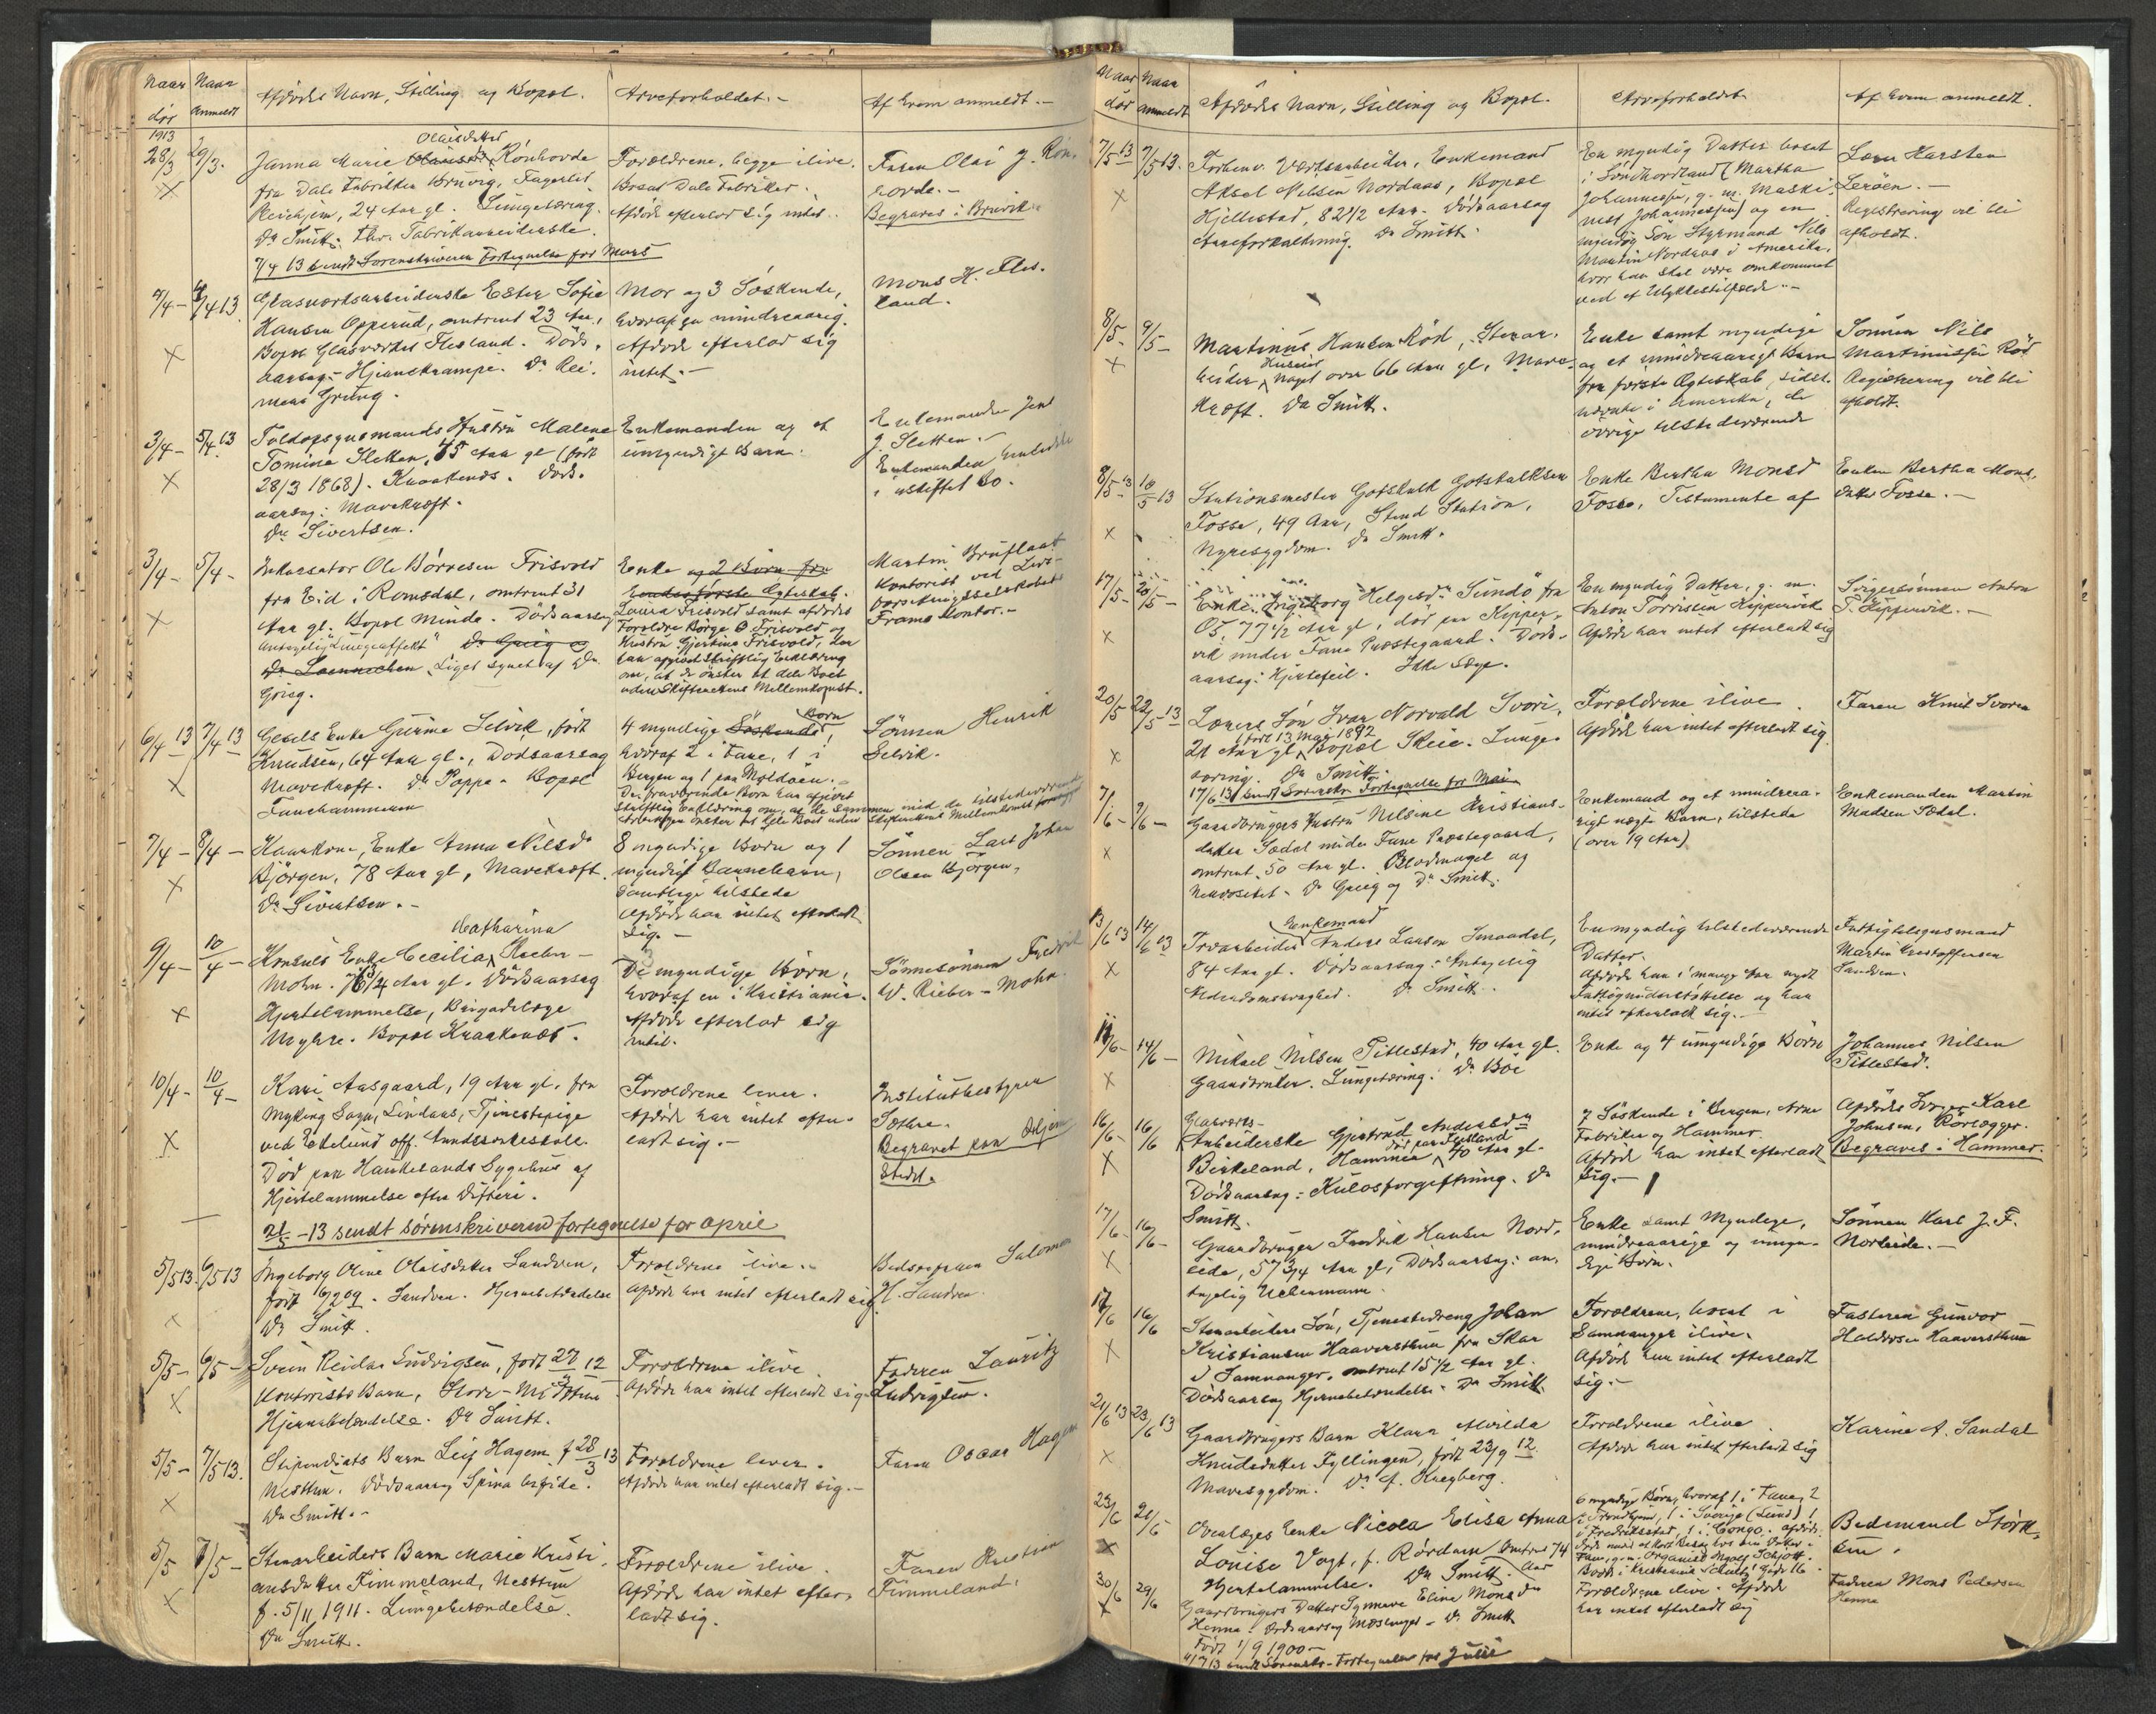 Naar
Naar
dør
anmeldt
Afdødes Navn, Stilling og Bopæl.
Arveforholdet. -
Af hvem anmeldt. -
1913
28/3
29/3.
Olaisdatter
Janna Marie Rönhovde
fra Dale Fabrikker Bruvig, Fagerlid
24 Aar gl. Lungetæring.
Dr Smitt. Fabrikarbeiderske.
7/4 13 sendt Sorenskriveren Fortegnelse for Mars
Forældrene, begge ilive.
Bosat Dale Fabrikker.
Afdøde efterlod sig intet.
Faren Olai J. Rön-
hovde. -
Begraves i Bruvik
2/4 -
4/4 13.
Glasværksarbeiderske Ester Sofie
Hansen Opperud, omtrent 23 Aar,
Bopæl Glasværket Flesland. Döds-
aarsag: Hjernekrampe. Dr Rei-
mers Grung.
Mor og 3 Söskende,
hvoraf en mindreaarig.
Afdøde efterlod sig
intet. -
Mons H. Fles-
land.
3/4 -
5/4 13
Toldopsynsmands Hustru Malene
Tomine Sletten, 45 Aar gl (født
28/3 1868). Kraakenes. Döds-
aarsag: Mavekræft.
Dr Sivertsen.
Enkemanden og et
umyndigt Barn.
Enkemanden Jens
J. Sletten. -
Enkemanden hensidder
i uskiftet Bo.
3/4 -
5/4 -
Inkassator Ole Børresen Frisvold
fra Eid i Romsdal, omtrent 31
Aar gl. Bopæl Minde. Dødsaarsag
Antagelig "Lungeaffekt" Dr Grieg
Dr Loennechen. Liget synet af Dr
Grieg.
Enke og 2 Börn fra
hendes første Ægteskab.
Laura Frisvold samt afdødes
Forældre Børge O Frisvold og
Hustru Gjertine Frisvold, der
har afgivet skriftlig Erklæring
om, at de ønsker at dele Boet
uden Skifterettens Mellemkomst.
Martin Bruflaat
Kontorist ved Livs-
forsikringsselskabet
Frams Kontor. -
6/4 13
7/4 13
Gesels Enke Gurine Selvik, født
Knudsen, 64 Aar gl., Dødsaarsag
Mavekræft. Dr Poppe. Bopæl
Fanehammeren
Børn
4 myndige Söskende,
hvoraf 2 i Fane, 1 i
Bergen og 1 paa Moldøen.
De fraværende Børn har afgivet
skriftlig Erklæring om, at de sammen med de tilstedeværende
Arvinger ønsker at dele Boet uden Skifterettens Mellemkomst
Sönnen Henrik
Selvik.
7/4 -
8/4 -
Kaarkone, Enke Anna Nilsdr
Bjørgen, 78 Aar gl, Mavekræft.
Dr Sivertsen. -
8 myndige Børn og 1
myndigt Barnebarn,
samtlige tilstede
Afdøde har intet efterladt
sig. -
Sönnen Lars Johan
Olsen Bjørgen,
9/4 -
10/4 -
Catharina
Konsuls Enke Cecilia Rieber -
Mohn. 76 3/4 Aar gl. Dødsaarsag
Hjertelammelse, Brigadelæge
Myhre. Bopæl Kraakenæs.
3
De myndige Børn,
hvoraf en i Kristiania.
Afdøde efterlod sig
intet.
Sönnesönnen Fredrik
W. Rieber-Mohn
10/4 -
10/4 -
Kari Aasgaard, 19 Aar gl. fra
Myking Sogn, Lindaas, Tjenestepige
ved Edelund off. Aandssvakeskole
Død paa Haukelands Sygehus af
Hjertelammelse efter Difteri.
Forældrene lever.
Afdøde har intet efter-
ladt sig. -
Institutbestyrer
Sæthre.
Begravet paa Hjem
Stedet.
2/5 -13 sendt sørenskriveren fortegnelse for april
5/5 13.
6/5 13
Ingeborg Oline Olaisdatter Sandven,
født 6/2 09. Sandven. Hjernebetændelse
Dr Smitt.
Forældrene ilive.
Afdøde har intet efterladt sig.
Bedstefaren Salomon
H. Sandven.
5/5 -
6/5 -
Svein Reidar Ludvigsen, født 27/3 12
Kontorists Barn, Store-Milde
Hjernebetændelse. Dr Smitt.
Forældrene ilive.
Afdøde har intet efterladt sig
Faderen Lauritz
Ludvigsen.
5/5 -
7/5 13.
Stipendiats Barn Leif Hagem f 28/3 13
Nesttun. Dødsaarsag Spina bifida.
Dr Smitt. -
Forældrene lever.
Afdøde har intet efterladt sig. -
Faren Oscar Hagem
5/5
7/5 -
Stenarbeiders Barn Marie Kristi-
ansdatter Timmeland, Nesttun
f. 5/11 1911. Lungebetændelse.
Dr Smitt.
Forældrene ilive.
Afdøde har intet efter-
ladt sig.
Faren Kristian
Timmeland.
Naar
Naar
dør
anmeldt
Afdødes Navn, Stilling og Bopæl.
Arveforholdet
Af hvem anmeldt.
7/5 13
7/5 13.
Forhenv. Værftsarbeider, Enkemand
Aksel Nilsen Nordaas, Bopæl
Hjellestad, 82 1/2 Aar. Dødsaarsag
Aareforkalkning. Dr Smitt.
En myndig Datter bosat
i Söndhordland (Martha
Johannessen, g. m. Maski-
nist Johannessen) og en
myndig Søn Styrmand Nils
Martin Nordaas i Amerika,
hvor han skal være omkommet
ved et Ulykkestilfælde. -
Lærer Karsten
Lerøen. -
Registrering vil bli
afholdt.
8/5 -
9/5 -
Martinus Hansen Röd, Stenar-
Husmand
beider noget over 66 Aar gl, Mave-
kræft. Dr Smitt.
Enke samt myndige
og et mindreaarigt Barn
fra første Ægteskab, sidst-
nævnte i Amerika, de
øvrige tilstedeværende
Sønnen Nils
Martinussen Röd
Registrering vil bli
afholdt.
8/5 13
10/5 13
Stationsmester Gotskalk Gotskalksen
Fosse, 49 Aar, Stend Station,
Nyresygdom. Dr Smitt.
Enke Bertha Monsd
Fosse, Testamente af
Enken Bertha Mons-
datter Fosse. -
17/5 -
20/5 -
Enke Ingeborg Helgesdr Sundø fra
Os, 77 1/2 Aar gl, død paa Kipper-
vik under Fane Præstegaard. Døds-
aarsag: Hjertefeil. Ikke Læge.
En myndig Datter, g. m.
Anton Torrissen Kippervik
Afdøde har intet efterladt sig
Svigersönnen Anton
T. Kippervik. -
20/5
22/5 13
Lærers Søn Ivar Norvald Svori,
født 13 Mai 1892
21 Aar gl Bopæl Skeie. Lunge-
tæring. Dr Smitt.
17/6 13 sendt Sorenskr. Fortegnelse for Mai
Forældrene ilive.
Afdøde har intet efterladt sig.
Faren Knut Svoren
7/6 -
9/6 -
Gaardbrugers Hustru Nilsine Kristians-
datter Sædal under Fane Præstegaard,
omtrent 50 Aar gl. Blodmangel og
Nervøsitet. Dr Grieg og Dr Smitt.
Enkemand og et mindreaa-
rigt ægte Barn, tilstede
(over 19 Aar)
Enkemanden Martin
Madsen Sædal.
13/6 13
14/6 13
Enkemand
Træarbeider Anders Larsen Smaadal,
84 Aar gl. Dødsaarsag: Antagelig
Alderdomssvaghed. Dr Smitt.
En myndig tilstedeværende
Datter.
Afdøde har i mange Aar nydt
Fattigunderstøttelse og har
intet efterladt sig. -
Fattigtilsynsmand
Martin Kristoffersen
Sandven.
11/6 -
14/6 -
Mikael Nilsen Titlestad, 40 Aar gl.
Gaardbruker. Lungetæring. Dr Böe
Enke og 4 umyndige Børn
Johannes Nilsen
Titlestad.
16/6 -
16/6
Glasværks-
Arbeiderske Gjertrud Andersdr
død paa Flesland
Birkeland, Hammer 40 Aar gl.
Dødsaarsag: Kulosforgiftning. Dr
Smitt.
7 Söskende i Bergen, Arne
Fabriker og Hammer.
Afdøde har intet efterladt
sig. -
Afdødes Svoger Karl
Johnsen, Rörlægger.
Begraves i Hammer.
17/6 -
16/6 -
Gaardbruger Fredrik Hansen Nord-
eide, 57 3/4 Aar gl, Dødsaarsag: an-
tagelig
Enke samt Myndige,
mindreaarige og umyn-
dige Børn.
Sönnen Karl J. F.
Nordeide. -
17/6
16/6
Stenarbeiders Søn, Tjenestedreng Johan
Kristiansen Haaversthun fra Skar
i Samnanger, omtrent 15 1/2 Aar gl.
Dødsaarsag Hjernebetændelse. Dr Smitt.
Forældrene, bosat i
Samnanger ilive.
Afdøde har intet efterladt
sig. -
Fasteren Gunvor
Haldorsen Haaversthun
21/6 13
23/6 13
Gaardbrugers Barn Klara Alvilda
Knudsdatter Fyllingen, født 23/9 12.
Mavesygdom. Dr A. Kreyberg.
Forældrene ilive
Afdøde har intet efterladt sig
Karine A. Sandal
23/6
21/6
Overlæges Enke Nicola Elisa Anna
Louise Vogt, f. Rördam omtrent 74
Aar
Hjertelammelse. Dr Smitt.
6 myndige Børn, hvoraf 1 i Fane, 2
i Trondhjem, 1 i Sverige (Lund) 1
i Fredriksstad, 1 i Congo. Afdøde
Fane, g. m. Organist Ingolf Schjött.
Bedemand Störk-
sen.
30/6
29/6
Gaardbrugers Datter Synneve Eline Monsdr
Henna. Dødsaarsag Mæslinger. Dr Smitt
Født 1/9 1900 -
4/7 13 sendt Sorenskr. Fortegnelse for Juni
Forældrene ilive. Afdøde
har intet efterladt sig
Faderen Mons Pedersen
Henna